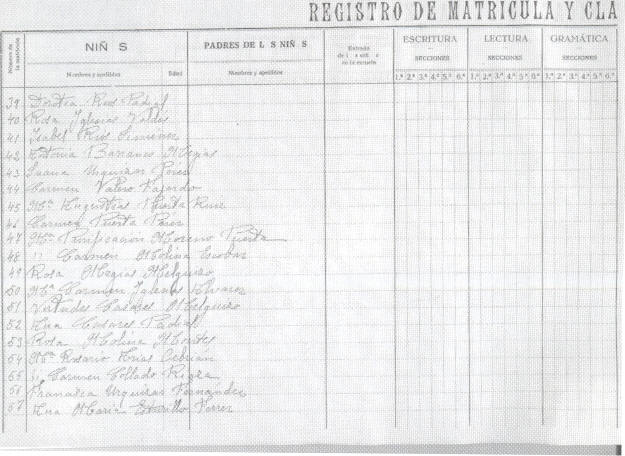 REGISTRO DE MATRICULA Y CLA
Número de la matrícula
NIÑ S
PADRES DE L S NIÑ S
Entrada de l s niñ s en la escuela
ESCRITURA
LECTURA
GRAMÁTICA
SECCIONES
SECCIONES
SECCIONES
Nombres y apellidos
Edad
Nombres y apellidos
1.ª 2.ª 3.ª 4.ª 5.ª 6.ª
1.ª 2.ª 3.ª 4.ª 5.ª 6.ª
1.ª 2.ª 3.ª 4.ª 5.ª 6.ª
39 Dorotea Rus Padial
40 Rosa Iglesias Valdés
41 Isabel Rus Jiménez
42 Antonia Barranco Megias
43 Juana Urquizar Pérez
44 Carmen Valero Fajardo
45 Mª Angustias Puerta Ruiz
46 Carmen Puerta Pérez
47 Mª Purificación Moreno Puerta
48 " Carmen Molina Escobar
49 Rosa Megias Melguizo
50 Mª Carmen Iglesias Alvarez
51 Virtudes Casares Melguizo
52 Ana Casares Padial
53 Rosa Molina Montes
54 Mª Rosario Arias Cebrian
55 " Carmen Collado
56 Francisca Urquizar Fernández
57 Ana Maria Ferrer